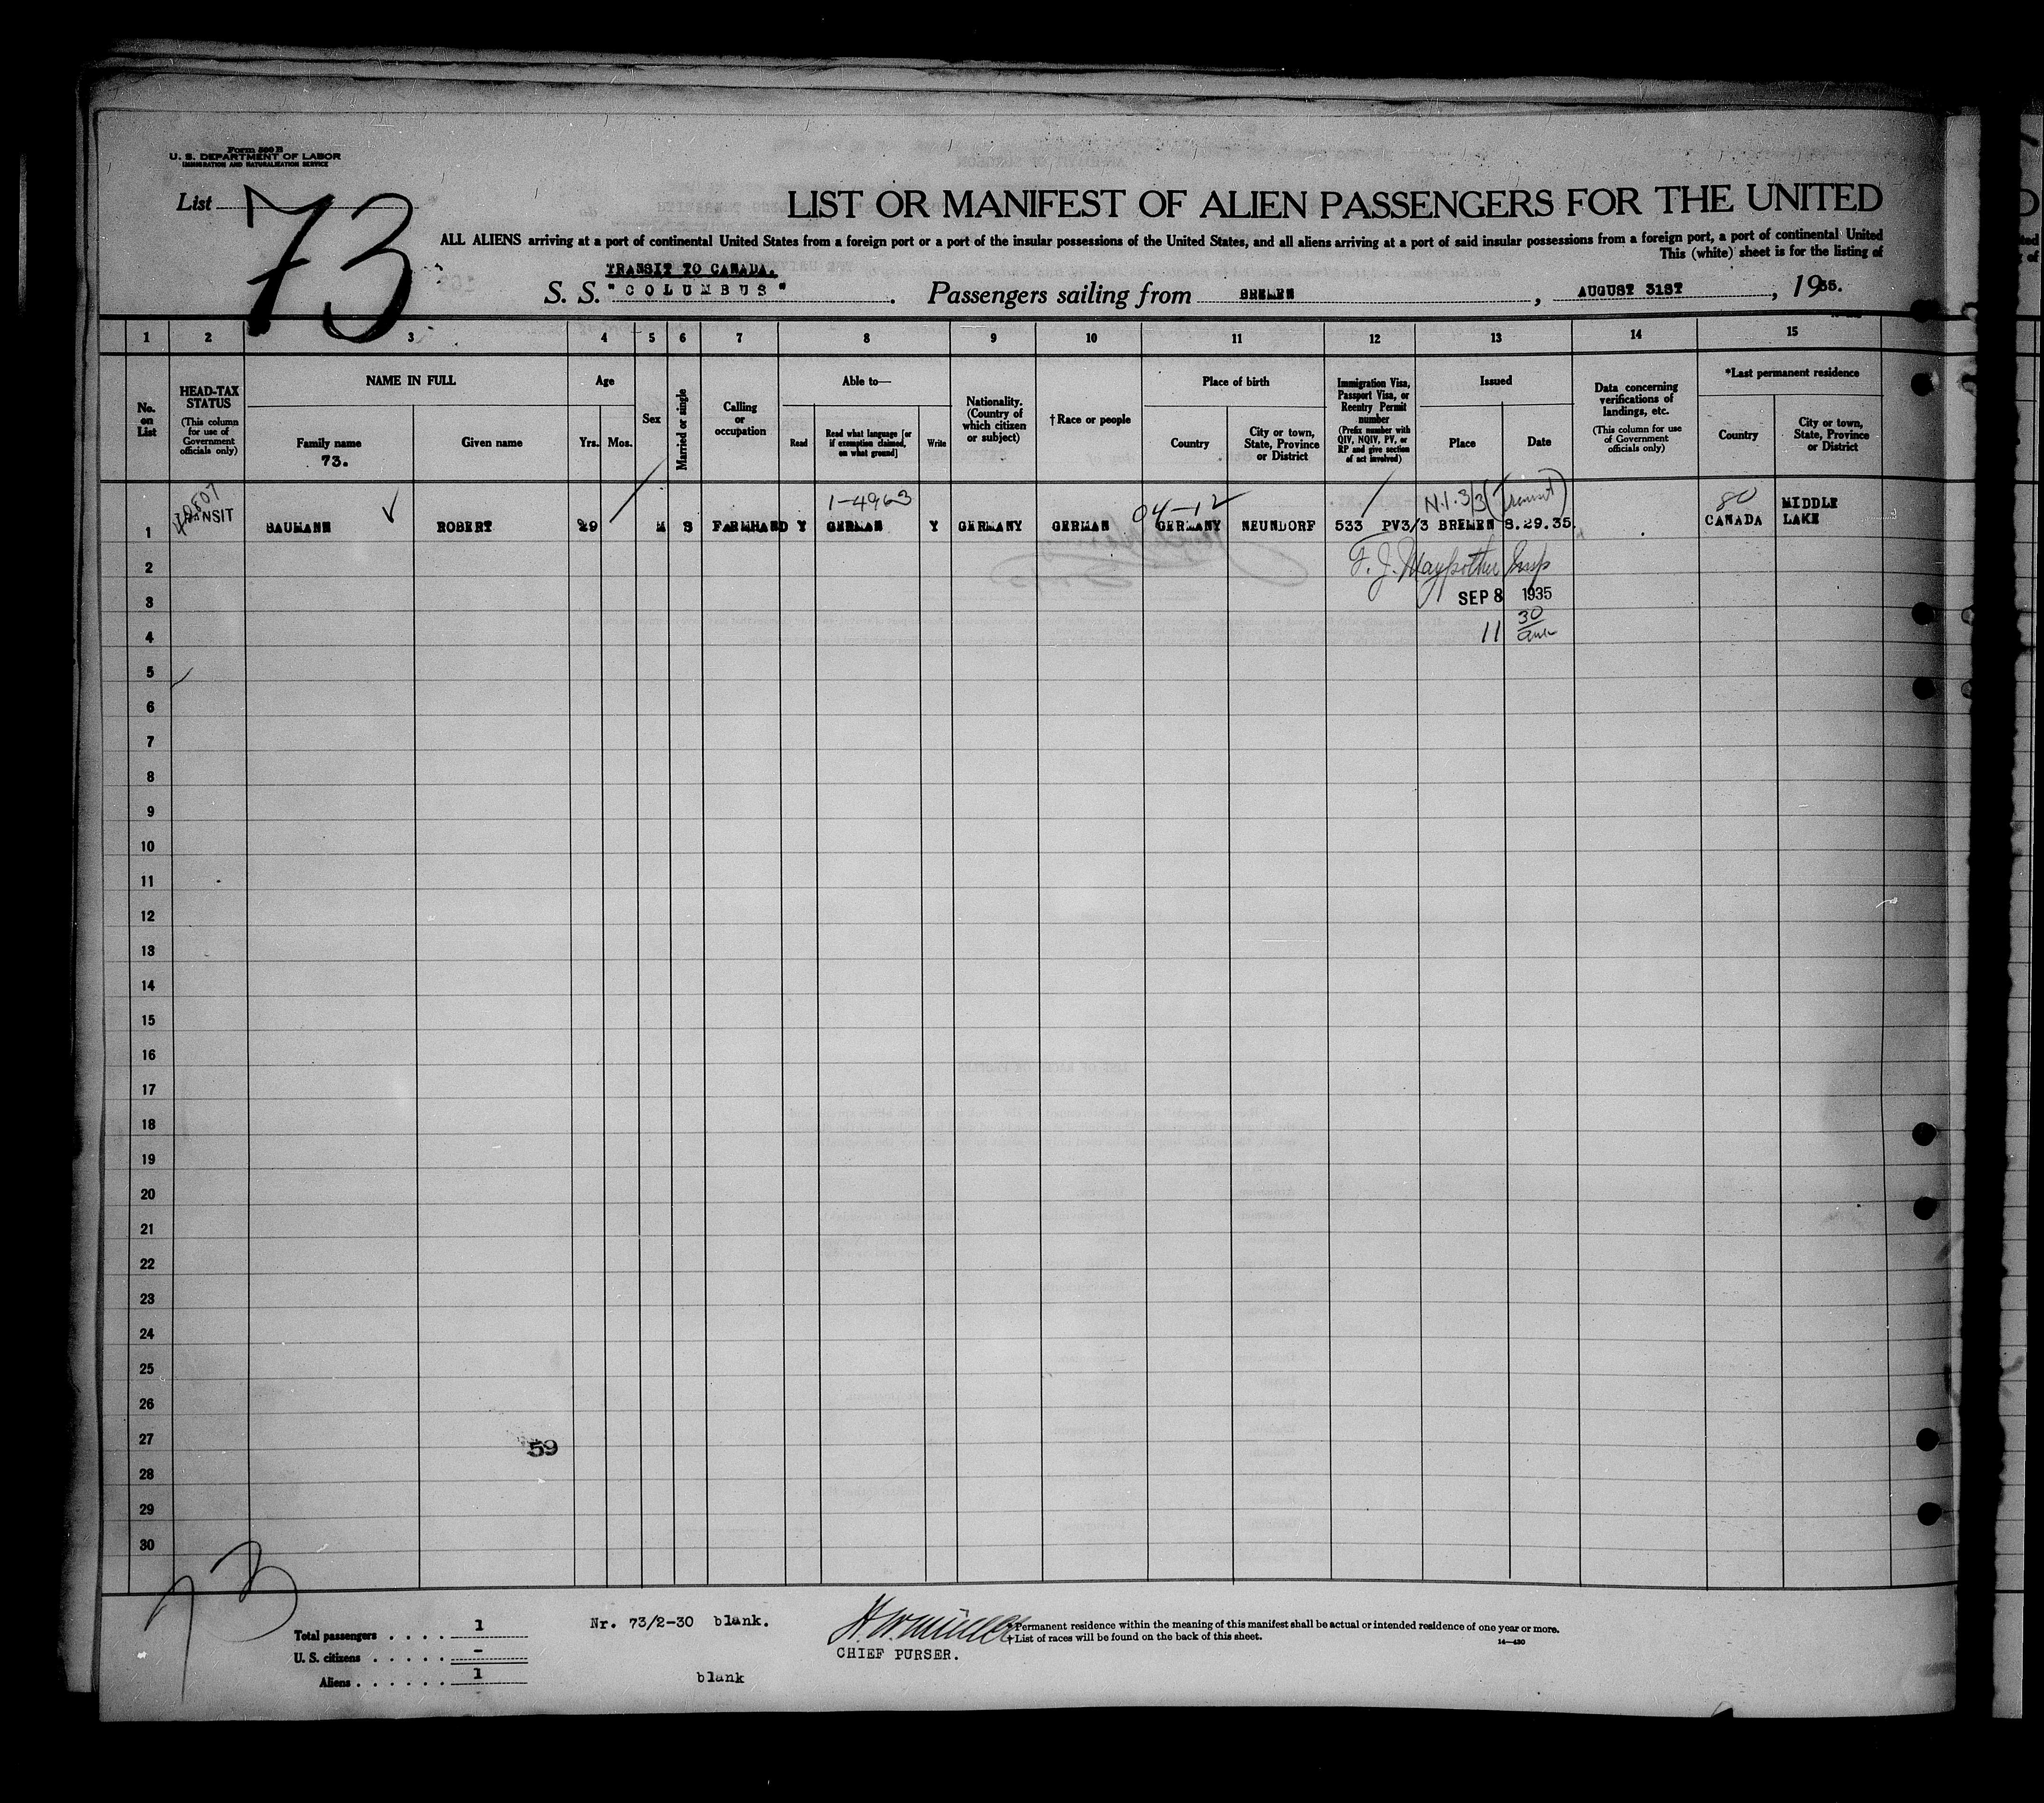 Form 500 B
U. S. DEPARTMENT OF LABOR
IMMIGRATION AND NATURALIZATION SERVICE
List 73
LIST OR MANIFEST OF ALIEN PASSENGERS FOR THE UNITED
ALL ALIENS arriving at a port of continental United States from a foreign port or a port of the insular possessions of the United States, and all aliens arriving at a port of said insular possessions from a foreign port, a port of continental United
This (white) sheet is for the listing of
TRANSIT TO CANADA.
S. S. "COLUMBUS". Passengers sailing from BREMEN, AUGUST 31ST, 1935.
1 2 3 4 5 6 7 8 9 10 11 12 13 14 15
No. on List
HEAD-TAX STATUS (This column for use of Government officials only)
NAME IN FULL
Family name
73.
Given name
Age
Yrs. Mos.
Sex
Married or single
Calling or occupation
Able to—
Read
Read what language [or if exemption claimed, on what ground]
Write
Nationality. (Country of which citizen or subject)
†Race or people
Place of birth
Country
City or town, State, Province or District
Immigration Visa, Passport Visa, or Reentry Permit number (Prefix number with QIV, NQIV, PV, or RP and give section of act involved)
Issued
Place
Date
Data concerning verifications of landings, etc. (This column for use of Government officials only)
*Last permanent residence
Country
City or town, State, Province or District
1-4963
04-12
N.I. 3/3 (Transit)
80
1 TRANSIT BAUMANN ROBERT 29 M S FARMHAND Y GERMAN Y GERMANY GERMAN GERMANY NEUNDORF 533 PV3/3 BREMEN 8.29.35. CANADA MIDDLE LAKE
2 F. J. Insp
3 SEP 8 1935
4 11 30 am
5
6
7
8
9
10
11
12
13
14
15
16
17
18
19
20
21
22
23
24
25
26
27
59
28
29
30
73
Total passengers . . . . 1
U. S. citizens . . . . . -
Aliens . . . . . . 1
Nr. 73/2-30 blank.
blank
CHIEF PURSER.
*Permanent residence within the meaning of this manifest shall be actual or intended residence of one year or more.
†List of races will be found on the back of this sheet.
14—430